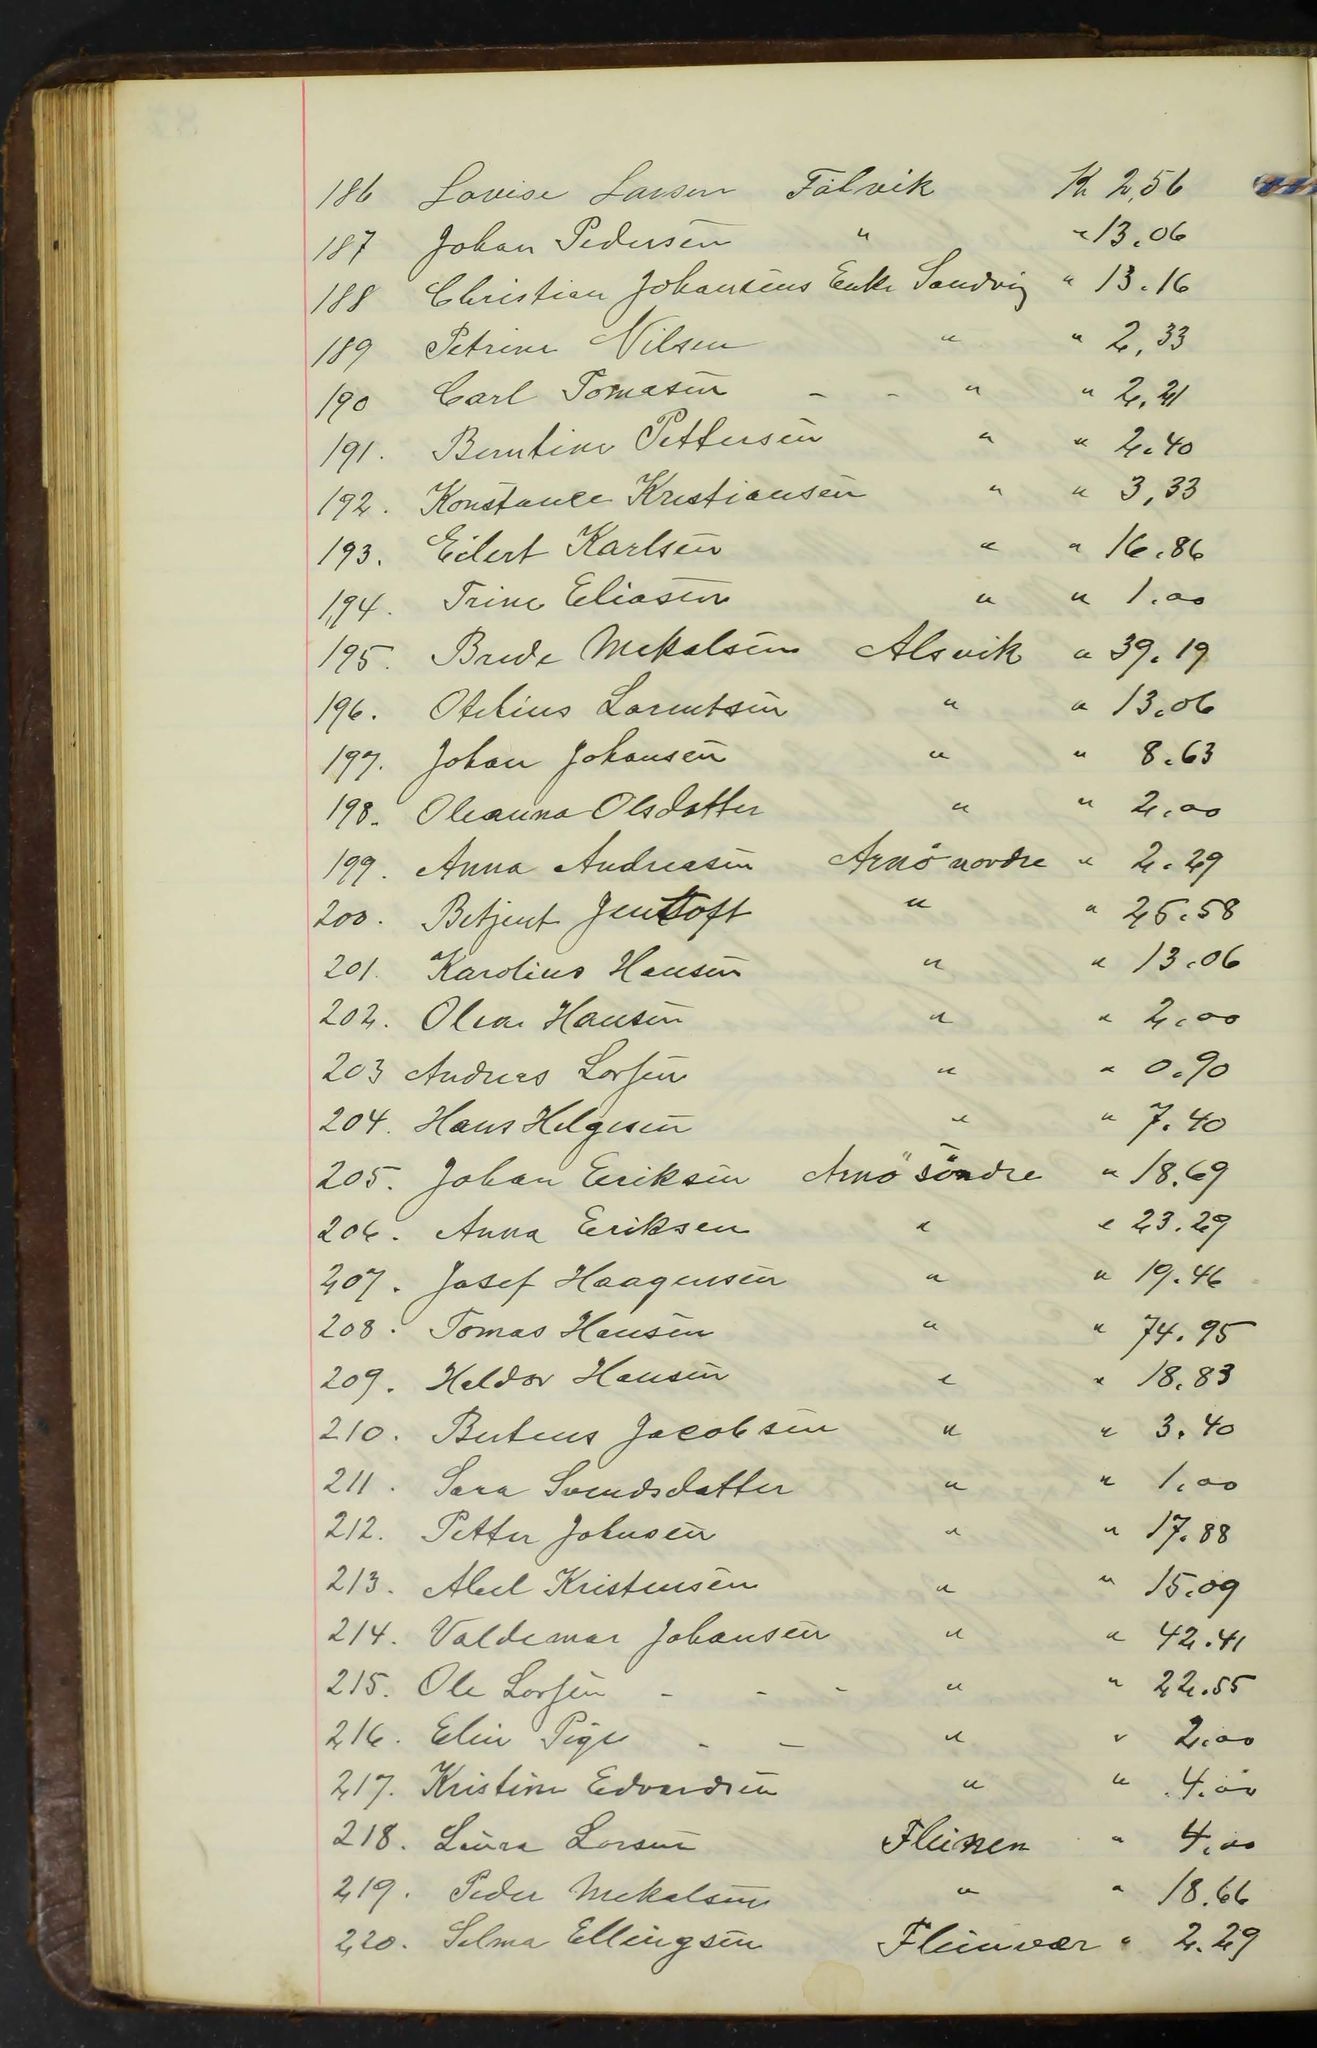 186 Lovise Larsen Fålvik Kr 2,56
187 Johan Pedersen " " 13.06
188 Christian Johansens Enke Sandvig " 13.16
189 Petrine Nilsen " " 2,33
190 Carl Tomasen - - " " 2.21
191. Berntine Pettersen " " 2.40
192. Konstance Kristiansen " " 3,33
193. Eilert Karlsen " " 16.86
194. Trine Eliasen " " 1.00
195. Brede Mekalsen Alsvik " 39.19
196. Otelius Larentsen " " 13.06
197. Johan Johansen " " 8.63
198. Oleanna Olsdatter " " 2.00
199. Anna Andreasen Arnö nordre " 2.29
200. Betjent Jentoft " " 25.58
201. Karolius Hansen " " 13.06
202. Olea Hansen " " 2.00
203 Andreas Lorsen " " 0.90
204. Hans Helgesen " " 7.40
205. Johan Eriksen Arnö söndre " 18.69
206. Anna Eriksen " " 23.29
207. Josef Haagensen " " 19.46
208. Tomas Hansen " " 74.95
209. Haldor Hansen " " 18.83
210. Berteus Jacobsen " " 3.40
211. Sara Svendsdatter " " 1.00
212. Petter Johnsen " " 17.88
213. Abel Kristensen " " 15.09
214. Valdemar Johansen " " 42.41
215. Ole Lorsen - - - " " 22.55
216. Elen Pige - - " " 2.00
217. Kristine Edvardsen " " 4.00
218. Laura Larsen Fleinen " 4.00
219. Peder Mekalsen " " 18.66
220. Selma Ellingsen Fleinvær " 2.29